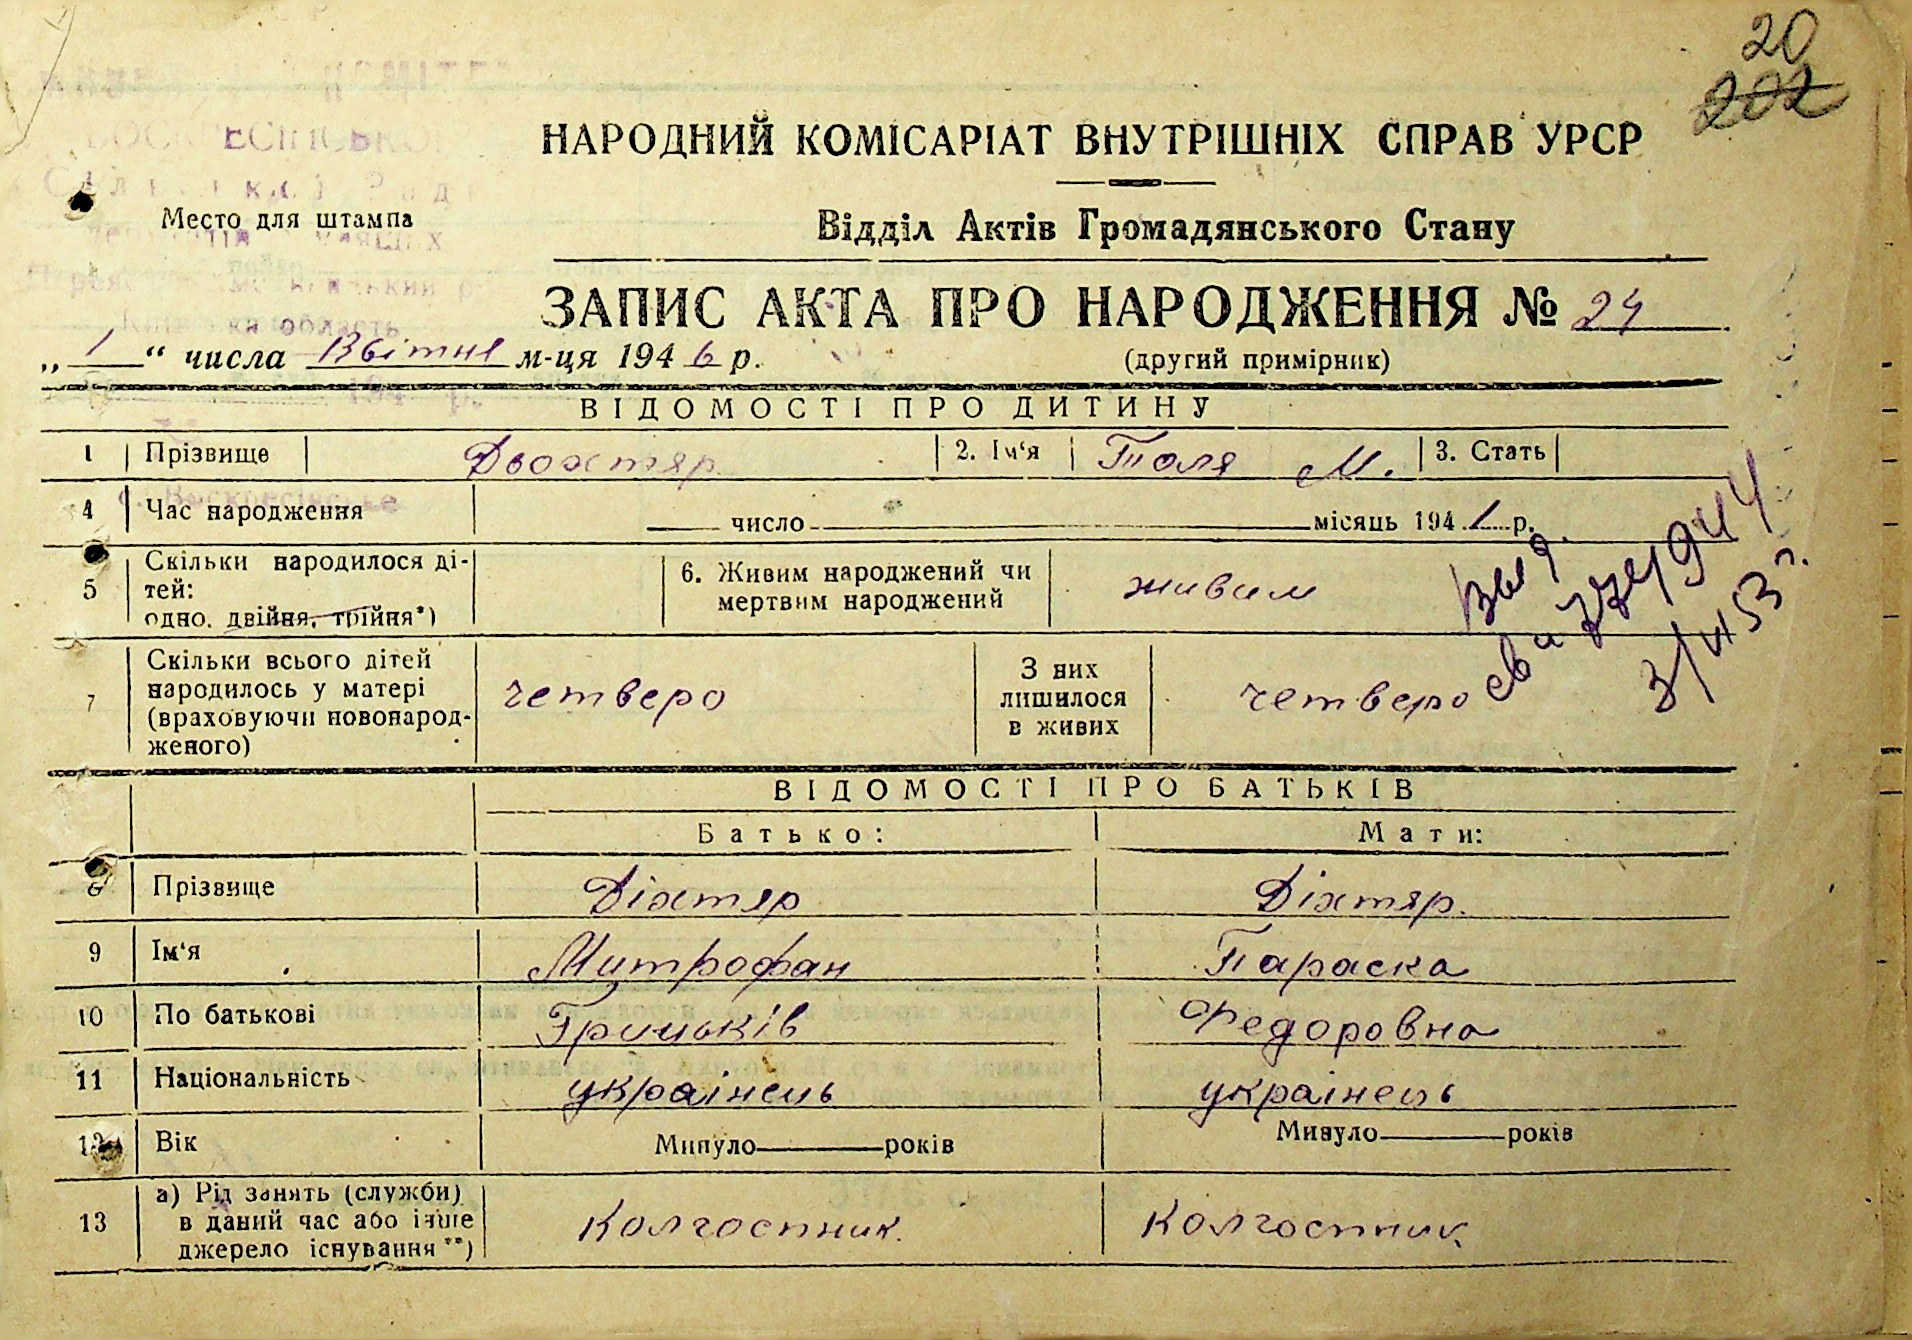 20
202
НАРОДНИЙ КОМІСАРІАТ ВНУТРІШНІХ СПРАВ УРСР
Место для штампа
Відділ Актів Громадянського Стану
ЗАПИС АКТА ПРО НАРОДЖЕННЯ № 24
„ 1 “ числа Квітня м-ця 1946 р.
(другий примірник)
ВІДОМОСТІ ПРО ДИТИНУ
1 Прізвище Двохтяр 2. Ім‘я Поля М. 3. Стать
4 Час народження число місяць 1941 р.
5 Скільки народилося ді-
тей:
одно, двійня, трійня*)
6. Живим народжений чи
мертвим народжений
живим
7 Скільки всього дітей
народилось у матері
(враховуючи новонарод-
женого)
четверо
З них
лишилося
в живих
четверо
выд.
св
3/VI 53 г.
ВІДОМОСТІ ПРО БАТЬКІВ
Батько: Мати:
8 Прізвище Діхтяр Діхтяр.
9 Ім‘я Митрофан Параска
10 По батькові Грицьків Федоровна
11 Національність українець українець
12 Вік Минуло років Минуло років
13 а) Рід занять (служби)
в даний час або інше
джерело існування**)
Колгоспник. Колгоспник